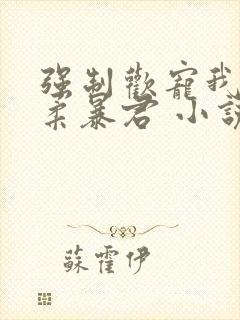 強制歡寵我
柔暴君 小說
蘇霍伊